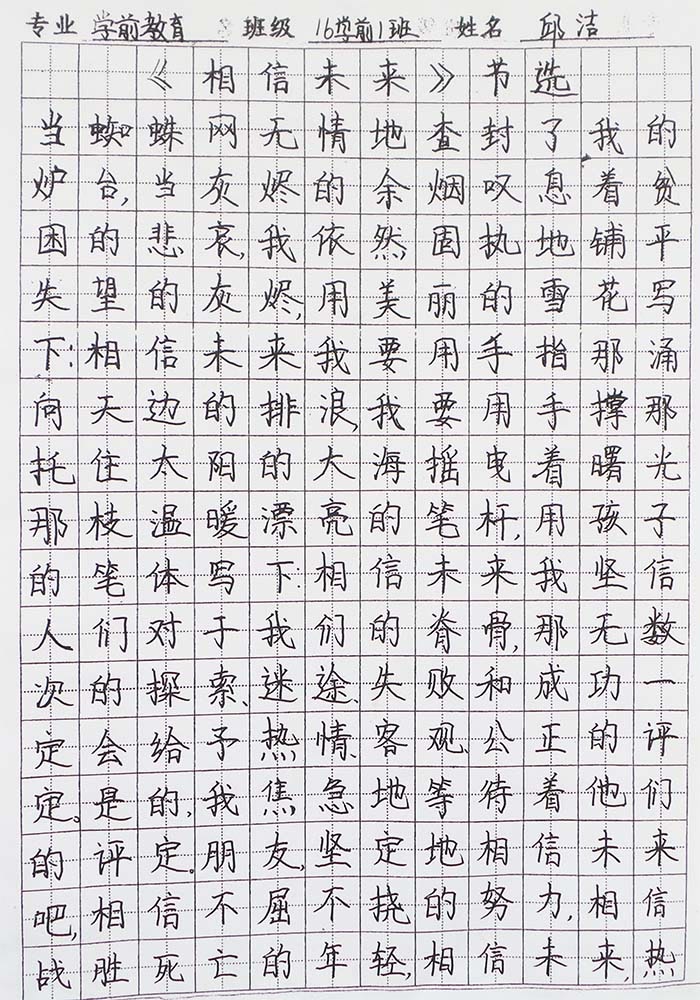 专业 学前教育 班级 16学前1班 姓名 邱洁
《相信未来》节选
当蜘蛛网无情地查封了我的
炉台,当灰烬的余烟叹息着贫
困的悲哀,我依然固执地铺平
失望的灰烬,用美丽的雪花写
下:相信未来我要用手指那涌
向天边的排浪,我要用手撑那
托住太阳的大海摇曳着曙光
那枝温暖漂亮的笔杆,用孩子
的笔体写下:相信未来我坚信
人们对于我们的脊骨,那无数
次的探索、迷途、失败和成功一
定会给予热情、客观、公正的评
定。是的,我焦急地等待着他们
的评定。朋友,坚定地相信未来
吧,相信不屈不挠的努力,相信
战胜死亡的年轻,相信未来,热